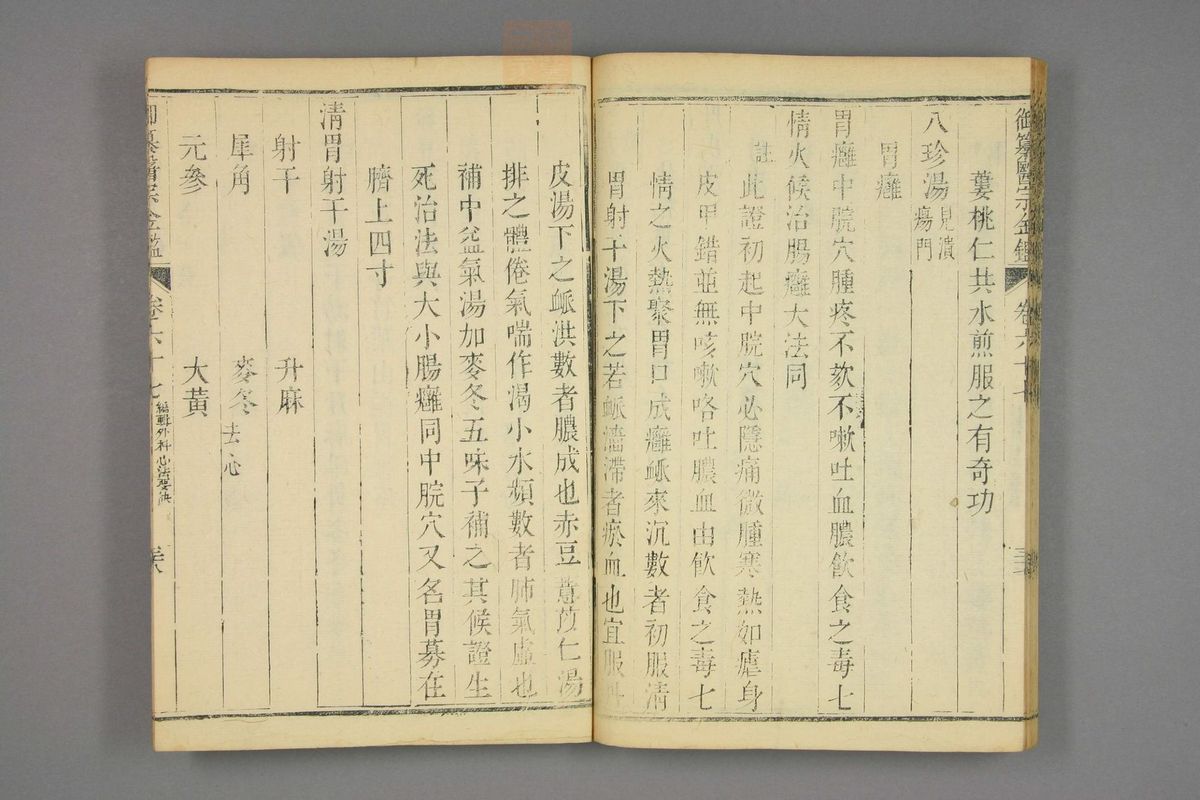 御纂醫宗金鑑 卷六十七
蔞桃仁共水煎服之有奇功
八珍湯見潰瘍門
胃癰
胃癰中脘穴腫疼不欬不嗽吐血膿飲食之毒七
情火候治腸癰大法同
註此證初起中脘穴必隱痛微腫寒熱如瘧身
皮甲錯並無咳嗽咯吐膿血由飲食之毒七
情之火熱聚胃口成癰脈來沉數者初服清
胃射干湯下之若脈濇滯者瘀血也宜服丹
皮湯下之脈洪數者膿成也赤豆薏苡仁湯
排之體倦氣喘作渴小水頻數者肺氣虛也
補中益氣湯加麥冬五味子補之其候證生
死治法與大小腸癰同中脘穴又名胃募在
臍上四寸
清胃射干湯
射干 升麻
犀角 麥冬去心
元參 大黃
御纂醫宗金鑑 卷六十七 編輯外科心法要訣 三六